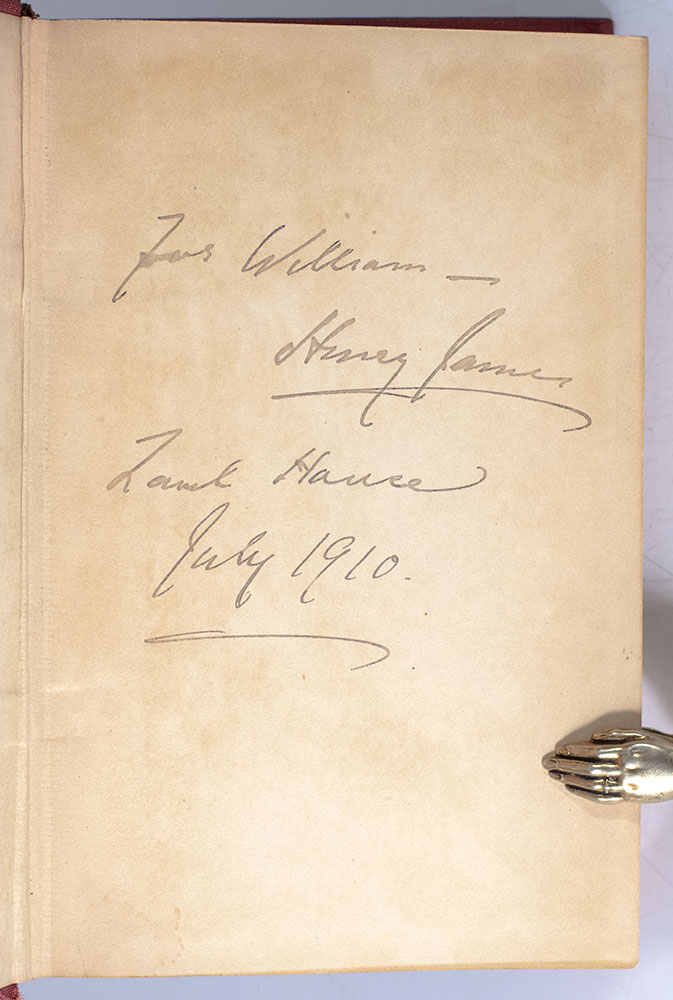 For William —
Henry James
Lamb House
July 1910.